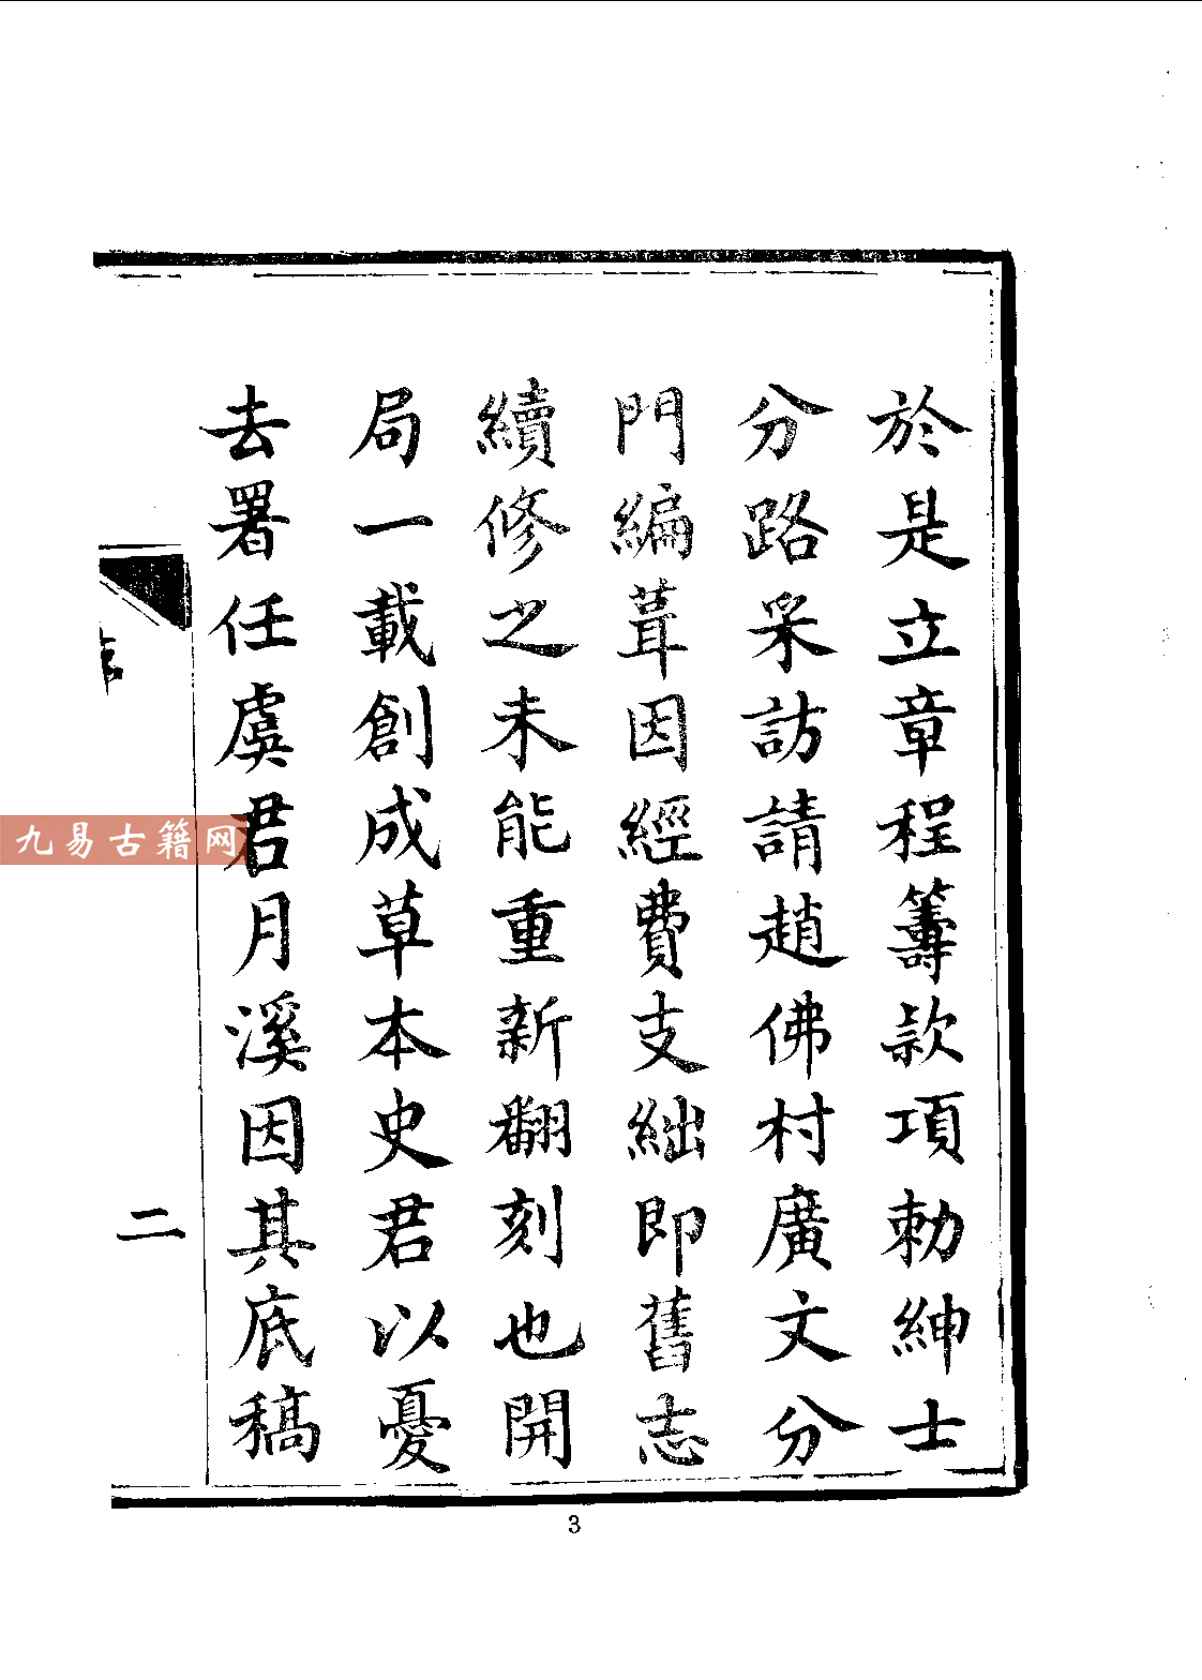 於是立章程籌款項勅紳士
分路采訪請趙佛村廣文分
門編葺因經費支絀即舊志
續修之未能重新翻刻也開
局一載創成草本史君以憂
去署任虞君月溪因其底稿
二
九易古籍网
3